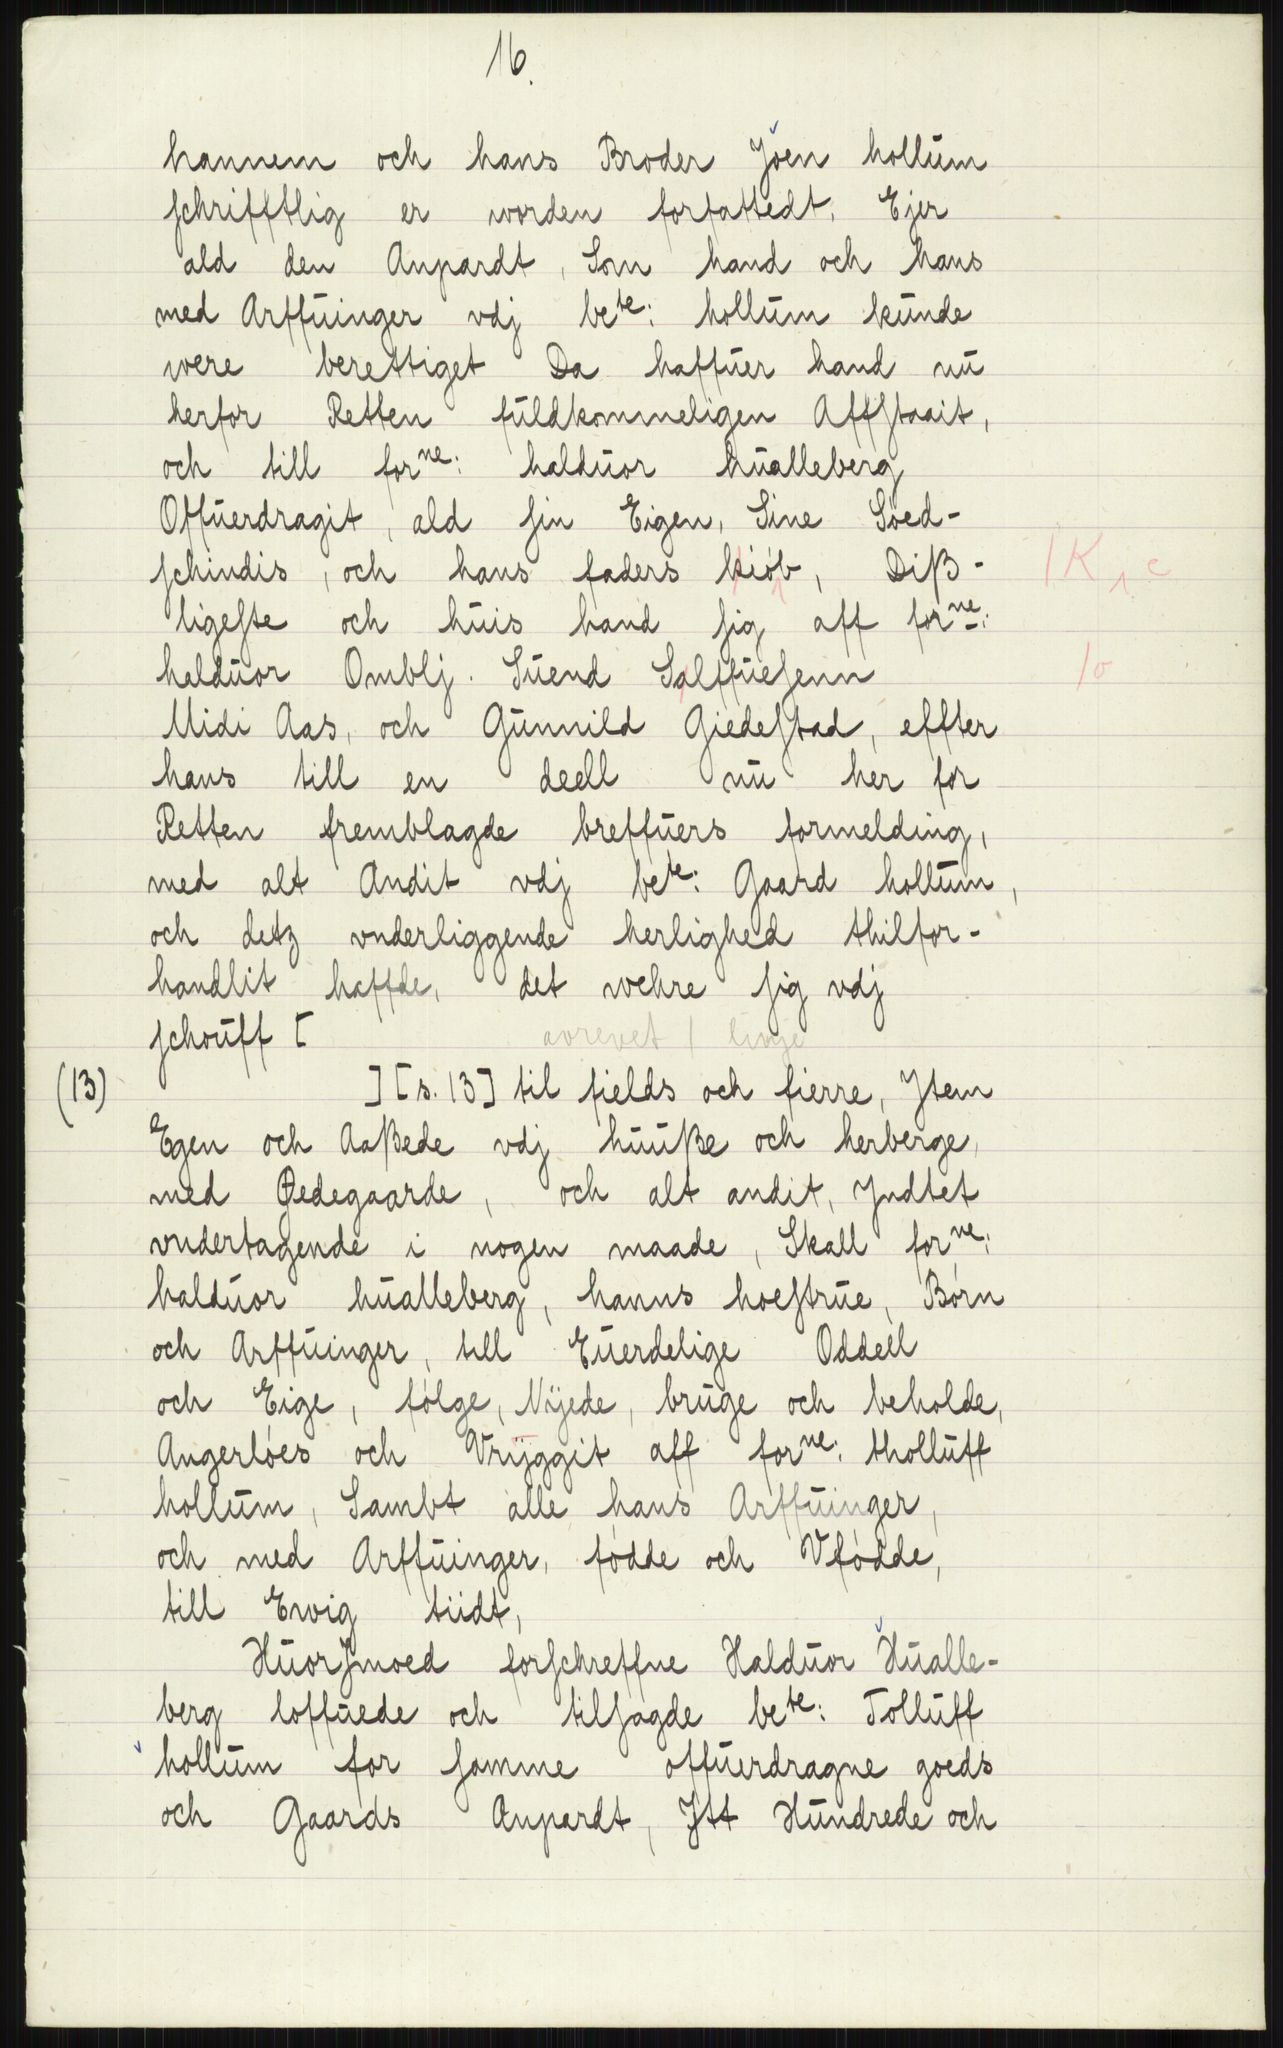 16.
hannem och hans Broder Joen hollum
schrifftlig er worden forfattedt, Ejer
ald den Anpardt, Som hand och hans
med Arffuinger vdj bete: hollum kunde
were berettiget Da haffuer hand nu
herfor Retten fuldkommeligen Affstaait,
och till forne: halduor hualleberg
Offuerdragit, ald sin Eigen, Sine Søed-
schindis, och hans faders kiøb, Diß- | K ₁ c
ligeste och huis hand sig aff forne:
halduor Omblj. Suend Salffuesenn | o
Midi Aas, och Gunnild Giedestad, effter
hans till en deell nu her for
Retten fremblagde breffuers formelding,
med alt Andit vdj bete: Gaard hollum,
och detz vnderliggende herlighed thilfor-
handlit haffde, det wehre sig vdj
schouff [ avrevet 1 linje
(13) ] [s. 13] til fields och fierre, Jtem
Egen och Aaßede vdj huuße och herberge,
med Ødegaarde, och alt andit, Jndtet
vndertagende i nogen maade, Skall forne:
halduor hualleberg, hanns hoestrue, Børn
och Arffuinger, till Euerdelige Oddell
och Eige, følge, Nyede, bruge och beholde,
Angerløes och Vryggit aff forne: tholluff
hollum, Sambt alle hans Arffuinger,
och med Arffuinger, fødde och Vfødde,
till Ewig tiidt,
Huorsmoed forschreffne Halduor Hualle-
berg loffuede och tilsagde bete: Tolluff
hollum for samme offuerdragne goeds
och Gaards Anpardt, Jtt Hundrede och